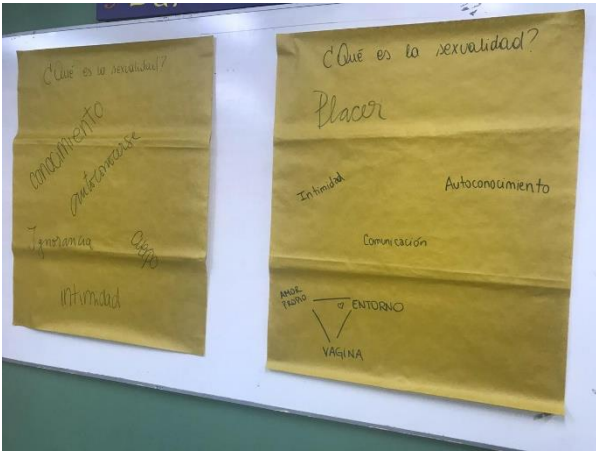 ¿Qué es la sexualidad?
conocimiento
autoconocerse
Ignorancia
intimidad
¿Qué es la sexualidad?
Placer
Intimidad
Autoconocimiento
Comunicación
AMOR
PROPIO
ENTORNO
VAGINA